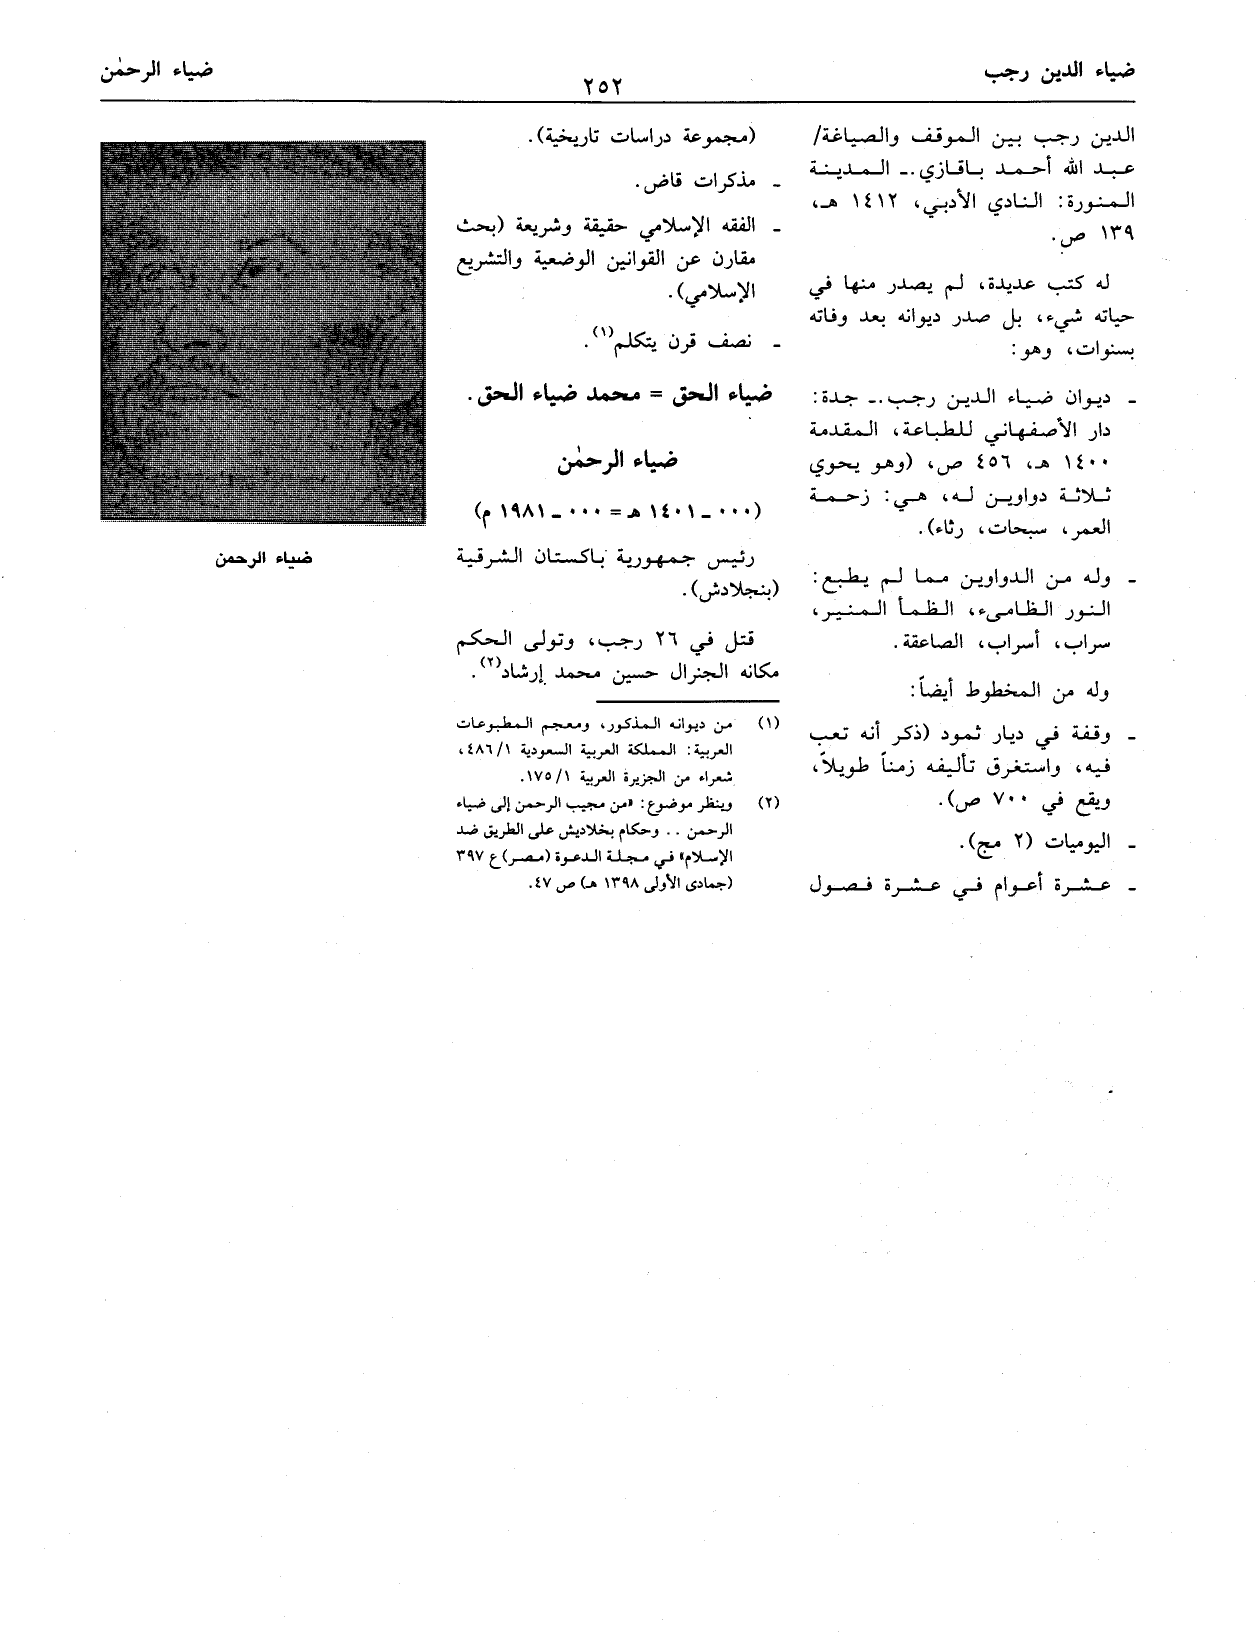 ضياء الدين رجب
٢٥٢
ضياء الرحمٰن
الدين رجب بين الموقف والصياغة/
عبد الله أحمد باقازي.ـ المدينة
المنورة: النادي الأدبي، ١٤١٢ هـ،
١٣٩ ص.
له كتب عديدة، لم يصدر منها في
حياته شيء، بل صدر ديوانه بعد وفاته
بسنوات، وهو:
ـ ديوان ضياء الدين رجب.ـ جدة:
دار الأصفهاني للطباعة، المقدمة
١٤٠٠ هـ، ٤٥٦ ص، (وهو يحوي
ثلاثة دواوين له، هي: زحمة
العمر، سبحات، رثاء).
ـ وله من الدواوين مما لم يطبع:
النور الظامىء، الظمأ المنير،
سراب، أسراب، الصاعقة.
وله من المخطوط أيضاً:
ـ وقفة في ديار ثمود (ذكر أنه تعب
فيه، واستغرق تأليفه زمناً طويلاً،
ويقع في ٧٠٠ ص).
ـ اليوميات (٢ مج).
ـ عشرة أعوام في عشرة فصول
(مجموعة دراسات تاريخية).
ـ مذكرات قاض.
ـ الفقه الإسلامي حقيقة وشريعة (بحث
مقارن عن القوانين الوضعية والتشريع
الإسلامي).
ـ نصف قرن يتكلم(١).
ضياء الحق = محمد ضياء الحق.
ضياء الرحمٰن
(٠٠٠ ـ ١٤٠١ هـ = ٠٠٠ ـ ١٩٨١ م)
رئيس جمهورية باكستان الشرقية
(بنجلادش).
قتل في ٢٦ رجب، وتولى الحكم
مكانه الجنرال حسين محمد إرشاد(٢).
(١) من ديوانه المذكور، ومعجم المطبوعات
العربية: المملكة العربية السعودية ٤٨٦/١،
شعراء من الجزيرة العربية ١٧٥/١.
(٢) وينظر موضوع: «من مجيب الرحمن إلى ضياء
الرحمن .. وحكام بخلاديش على الطريق ضد
الإسلام» في مجلة الدعوة (مصر) ع ٣٩٧
(جمادى الأولى ١٣٩٨ هـ) ص ٤٧.
ضياء الرحمن